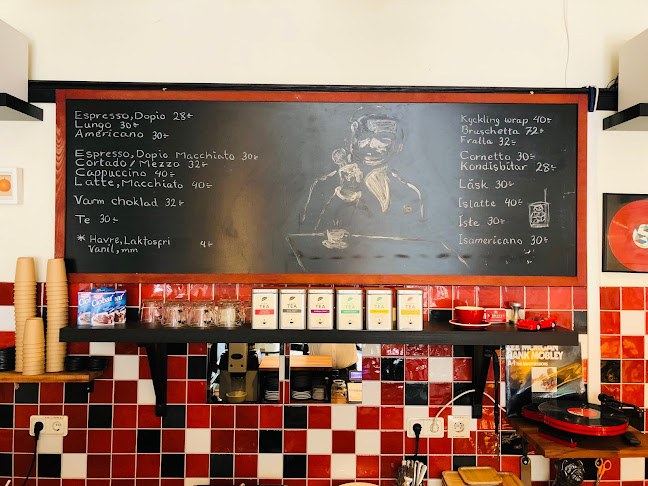 Espresso, Dopio 28:-
Lungo 30:-
Americano 30:-
Espresso, Dopio Macchiato 30:-
Cortado/Mezzo 32:-
Cappuccino 40:-
Latte, Macchiato 40:-
Varm choklad 32:-
Te 30:-
* Havre, Laktosfri 4:-
Vanil, mm
Kyckling wrap 40:-
Bruschetta 72:-
Fralla 32:-
Cornetto 30:-
Kondisbitar 28:-
Läsk 30:-
Islatte 40:-
Iste 30:-
Isamericano 30:-
TEA
TEA
TEA
TEA
TEA
TEA
HANK MOBLEY